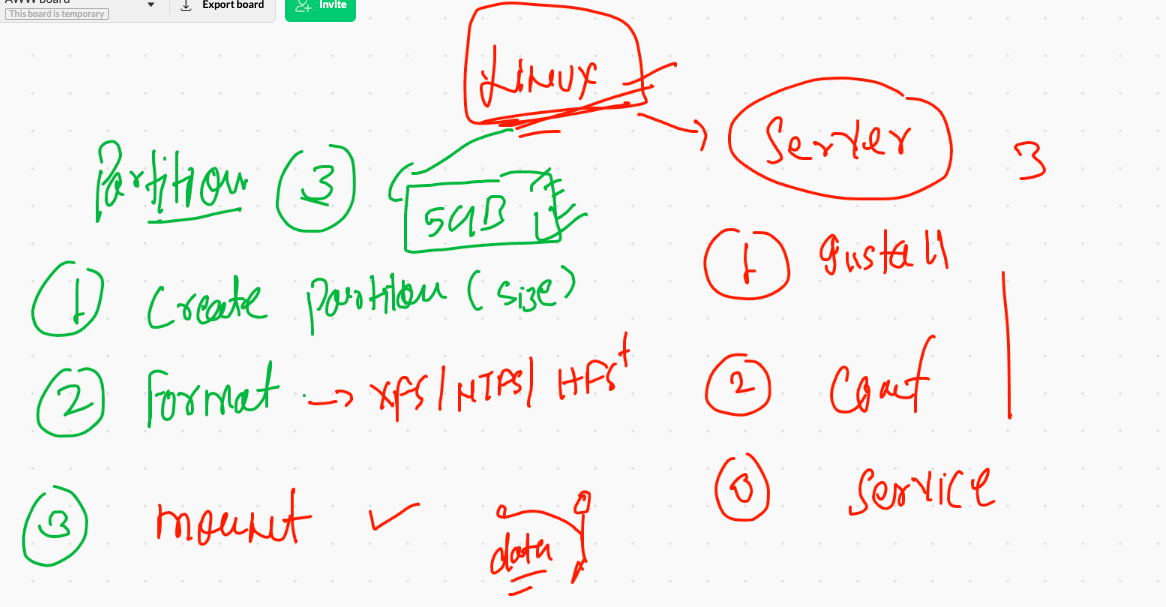 AWW board
This board is temporary
Export board
Invite
Linux
Server
3
Partition 3
5GB
1 Create Partition (size)
2 Format → XFS/NTFS/HFS+
3 mount ✓
data
1 Install
2 Conf
3 Service